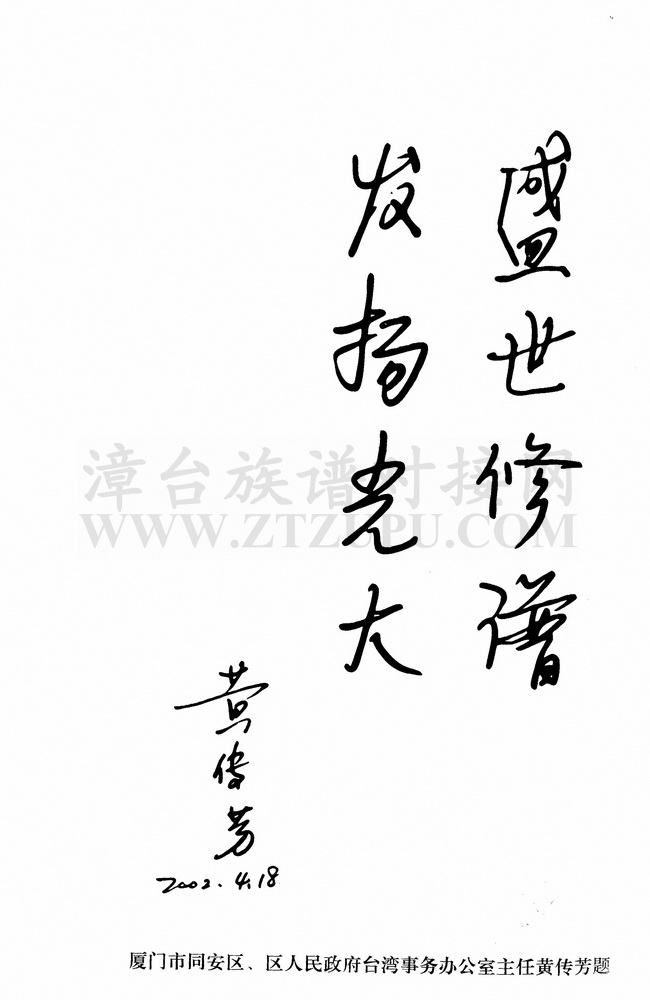 盛世修谱
发扬光大
黄传芳
2002.4.18
漳台族谱对接网
WWW.ZTZUPU.COM
厦门市同安区、区人民政府台湾事务办公室主任黄传芳题